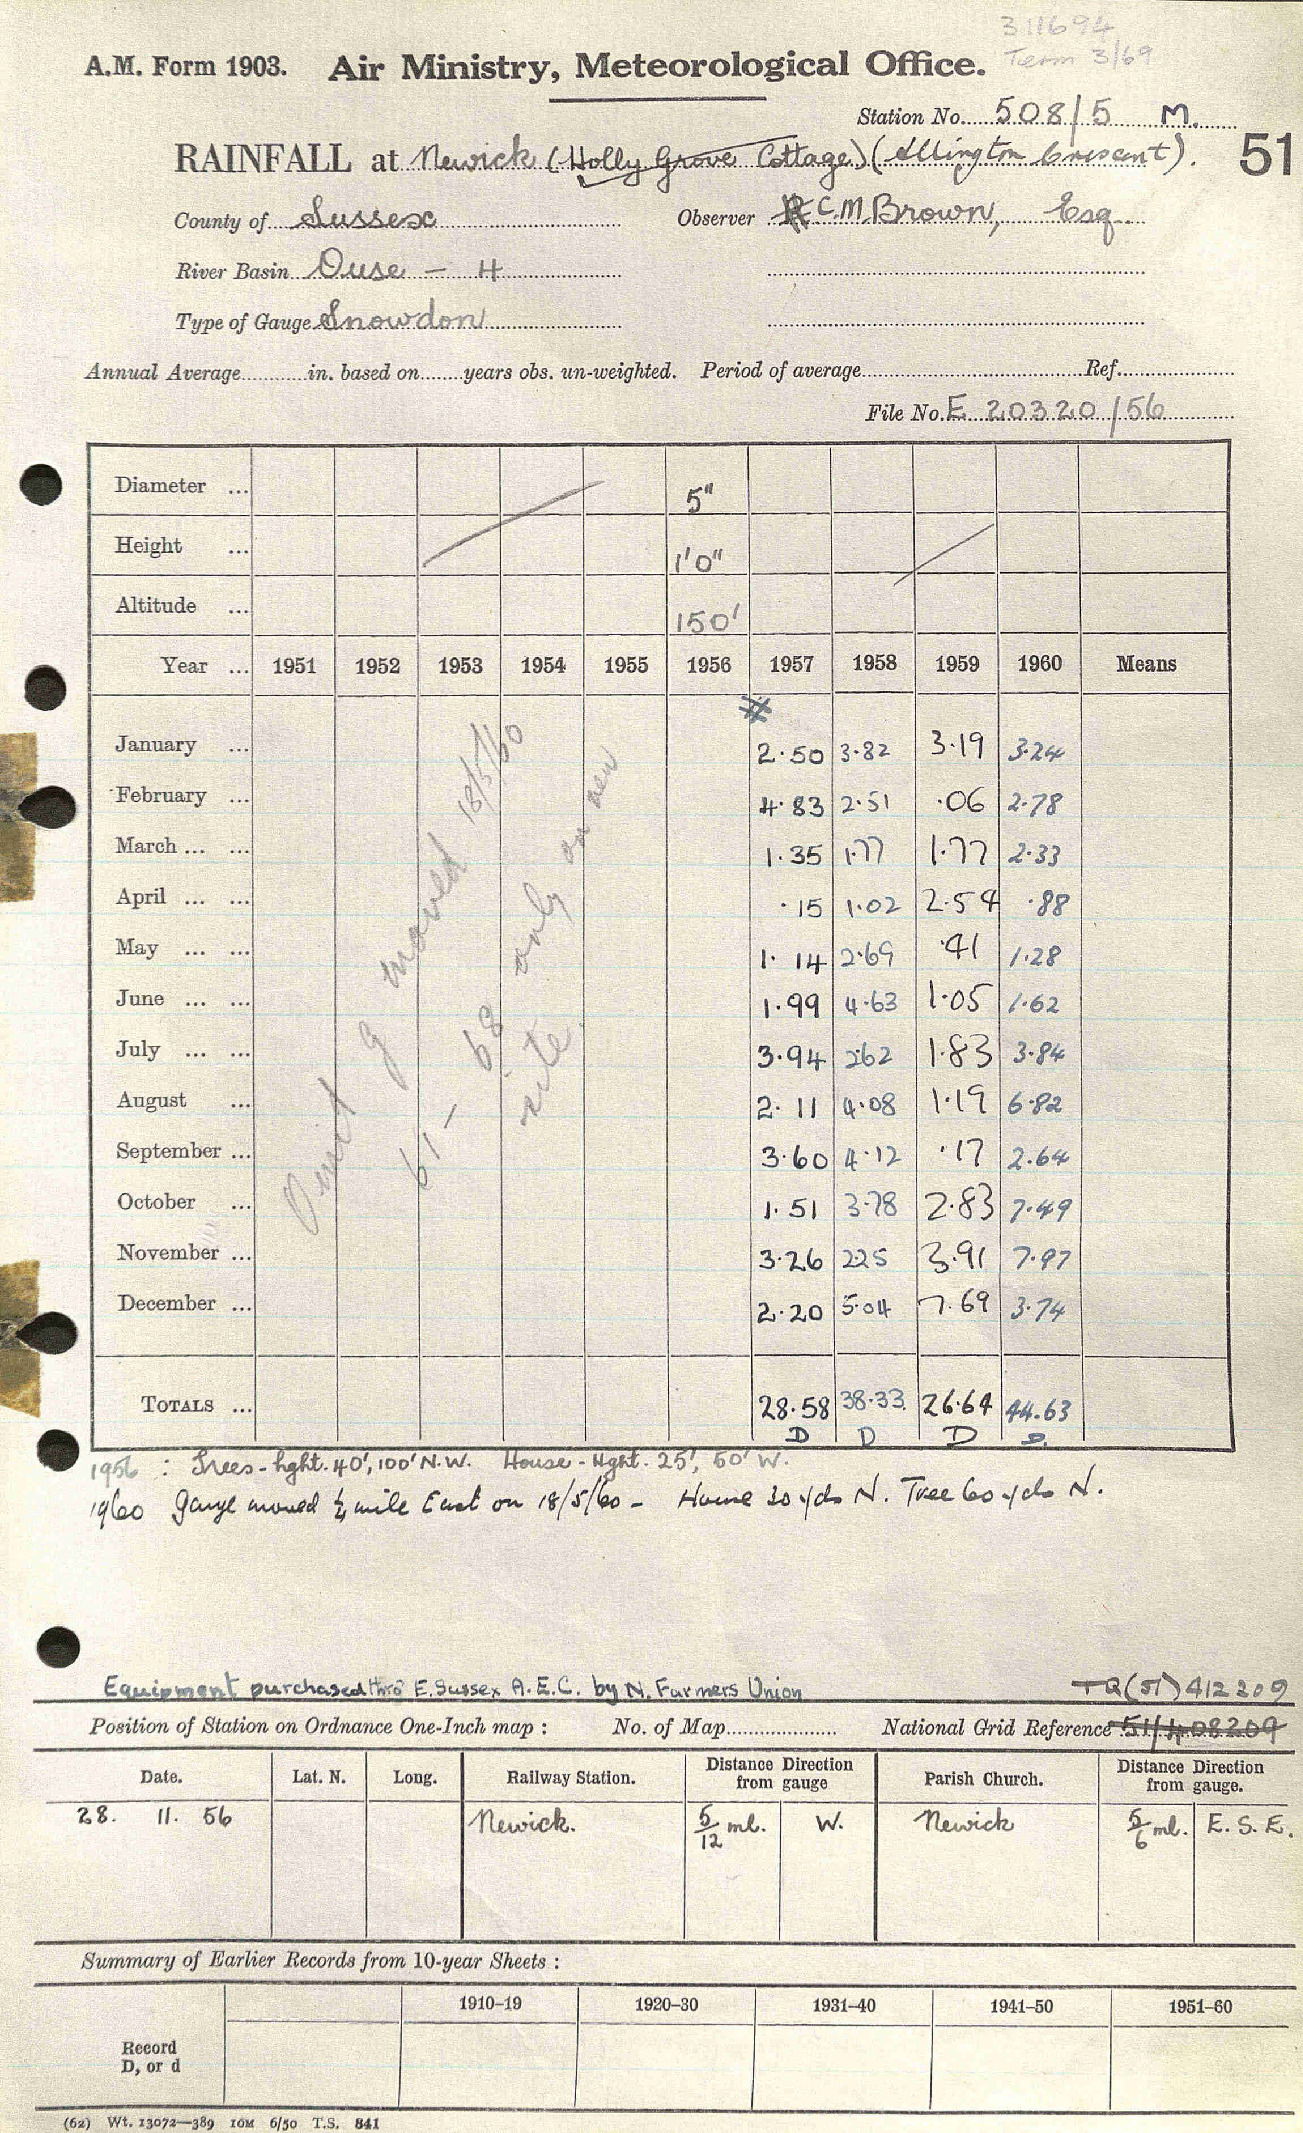 311694
Term 3/69
A.M. Form 1903. Air Ministry, Meteorological Office.
Station No. 508/5 M.
RAINFALL at Newick (Holly Grove Cottage) (Allington Crescent). 51
County of Sussex Observer C.M. Brown, Esq.
River Basin Ouse - 4
Type of Gauge Snowdon
Annual Average in. based on years obs. un-weighted. Period of average Ref.
File No. E 20320/56
Diameter ... 5"
Height ... 1'0"
Altitude ... 150'
Year ... 1951 1952 1953 1954 1955 1956 1957 1958 1959 1960 Means
#
January ... 2.50 3.82 3.19 3.24
February ... 4.83 2.51 .06 2.78
March ... ... 1.35 1.77 1.77 2.33
April ... ... .15 1.02 2.54 .88
May ... ... 1.14 2.69 .41 1.28
June ... ... 1.99 4.63 1.05 1.62
July ... ... 3.94 2.62 1.83 3.84
August ... 2.11 4.08 1.19 6.82
September ... 3.60 4.12 .17 2.64
October ... 1.51 3.78 2.83 7.49
November ... 3.26 2.25 3.91 7.97
December ... 2.20 5.04 7.69 3.74
Omit g moved 18/5/60
61 - 68 only on new
site
TOTALS ... 28.58 38.33 26.64 44.63
D D D D.
1956 : Trees - hght. 40', 100' N.W. House - Hght. 25', 50' W.
1960 Gauge moved ¼ mile East on 18/5/60 - House 30 yds N. Tree 60 yds N.
Equipment purchased thro' E. Sussex A.E.C. by N. Farmers Union TQ(51)412209
Position of Station on Ordnance One-Inch map : No. of Map National Grid Reference 51/408209
Date. Lat. N. Long. Railway Station. Distance Direction from gauge Parish Church. Distance Direction from gauge.
28. 11. 56 Newick. 5/12 ml. W. Newick 5/6 ml. E. S. E.
Summary of Earlier Records from 10-year Sheets :
1910–19 1920–30 1931–40 1941–50 1951–60
Record
D, or d
(62) Wt. 13072—389 10M 6/50 T.S. 841